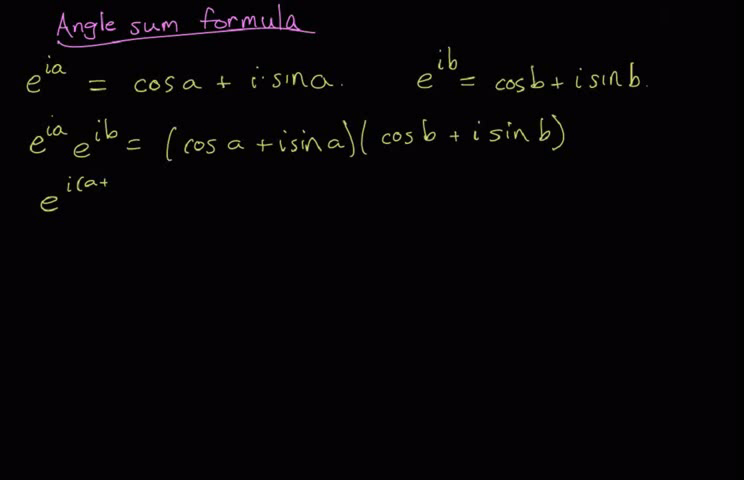 Angle sum formula
e^{ia} = cos a + i·sin a.    e^{ib} = cos b + i sin b.
e^{ia} e^{ib} = (cos a + i sin a)(cos b + i sin b)
e^{i(a+}